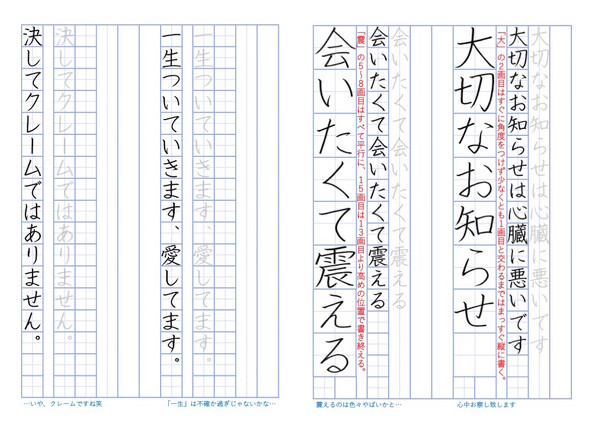 大切なお知らせは心臓に悪いです
大切なお知らせは心臓に悪いです
「大」の2画目はすぐに角度をつけず少なくとも1画目と交わるまではまっすぐ縦に書く。
大切なお知らせ
心中お察し致します
会いたくて会いたくて震える
会いたくて会いたくて震える
「震」の5~8画目はすべて平行に、15画目は13画目より高めの位置で書き終える。
会いたくて震える
震えるのは色々やばいかと…
一生ついていきます、愛してます。
一生ついていきます、愛してます。
「一生」は不確か過ぎじゃないかな…
決してクレームではありません。
決してクレームではありません。
…いや、クレームですね笑